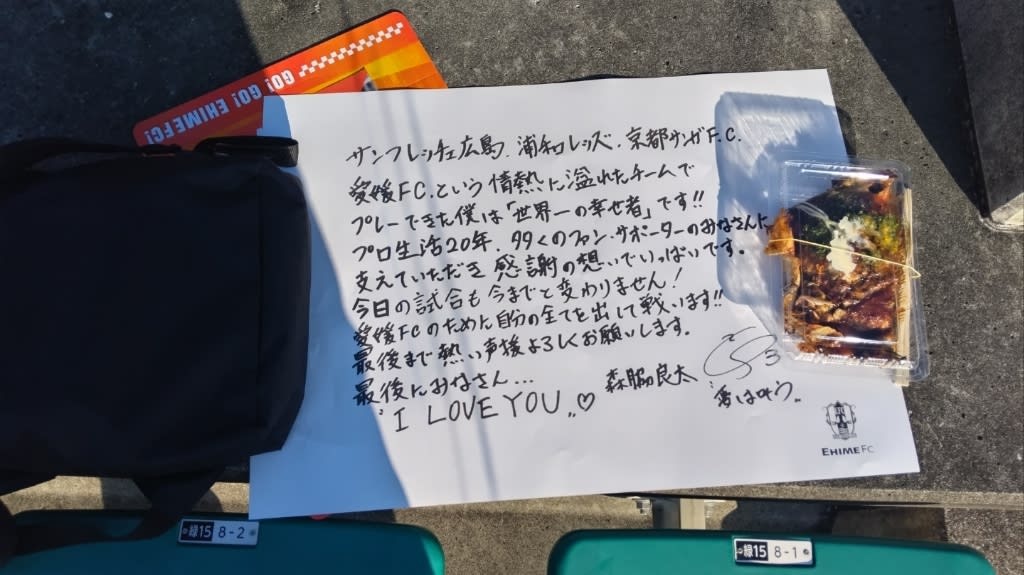 GO! GO! EHIME FC!
サンフレッチェ広島、浦和レッズ、京都サンガF.C.
愛媛FC.という情熱に溢れたチームで
プレーできた僕は「世界一の幸せ者」です!!
プロ生活20年、多くのファン・サポーターのみなさんに
支えていただき感謝の想いでいっぱいです。
今日の試合も今までと変わりません!
愛媛FCのために自分の全てを出して戦います!!
最後まで熱い声援よろしくお願いします。
最後にみなさん...
"I LOVE YOU„♡
森脇良太
3
"夢は叶う„
EHIME FC
緑15 8-2
緑15 8-1